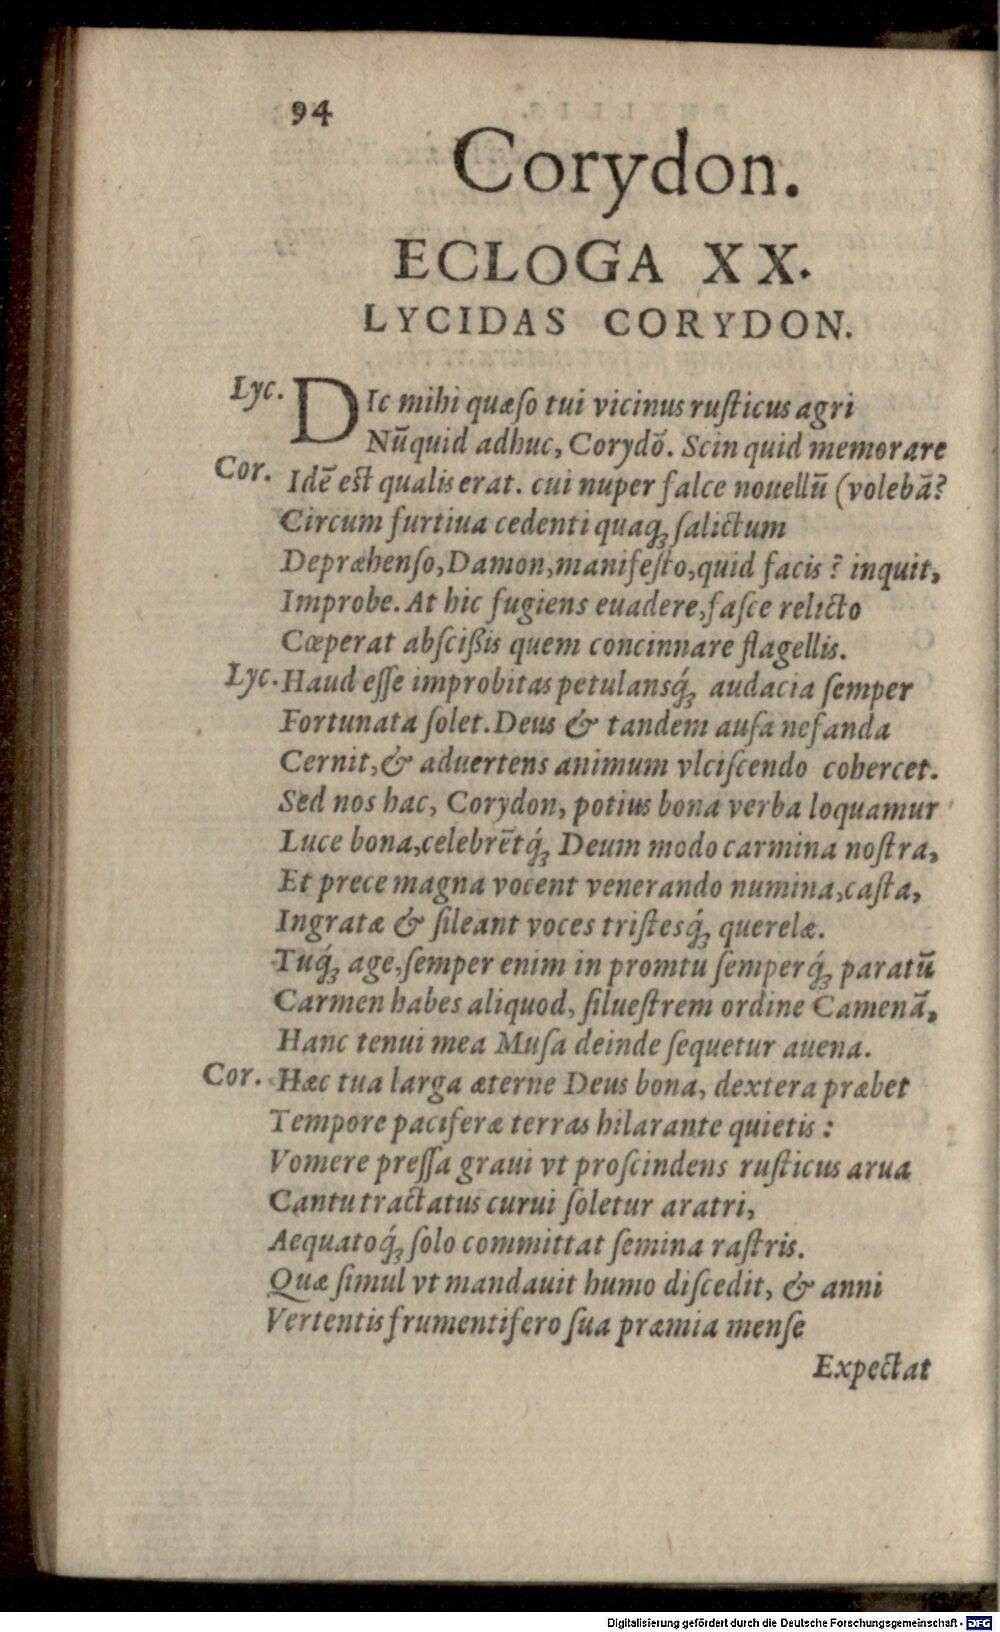 94
Corydon.
ECLOGA XX.
LYCIDAS CORYDON.
Lyc. DIc mihi quæſo tui vicinus ruſticus agri
Nūquid adhuc, Corydō. Scin quid memorare
Cor. Idē eſt qualis erat. cui nuper falce nouellū (volebā?
Circum furtiua cedenti quaqꝫ ſalictum
Depræhenſo, Damon, manifeſto, quid facis? inquit,
Improbe. At hic fugiens euadere, faſce relicto
Cœperat abſcißis quem concinnare flagellis.
Lyc. Haud eſſe improbitas petulansq́ꝫ audacia ſemper
Fortunata ſolet. Deus & tandem auſa nefanda
Cernit, & aduertens animum vlciſcendo cohercet.
Sed nos hac, Corydon, potius bona verba loquamur
Luce bona, celebrētq́ꝫ Deum modo carmina noſtra,
Et prece magna vocent venerando numina, caſta,
Ingratæ & ſileant voces triſtesq́ꝫ querelæ.
Tuq́ꝫ age, ſemper enim in promtu ſemperq́ꝫ paratū
Carmen habes aliquod, ſilueſtrem ordine Camenā,
Hanc tenui mea Muſa deinde ſequetur auena.
Cor. Hæc tua larga æterne Deus bona, dextera præbet
Tempore paciferæ terras hilarante quietis:
Vomere preſſa graui vt proſcindens ruſticus arua
Cantu tractatus curui ſoletur aratri,
Aequatoq́ꝫ ſolo committat ſemina raſtris.
Quæ ſimul vt mandauit humo diſcedit, & anni
Vertentis frumentifero ſua præmia menſe
Expectat
Digitalisierung gefördert durch die Deutsche Forschungsgemeinschaft - DFG